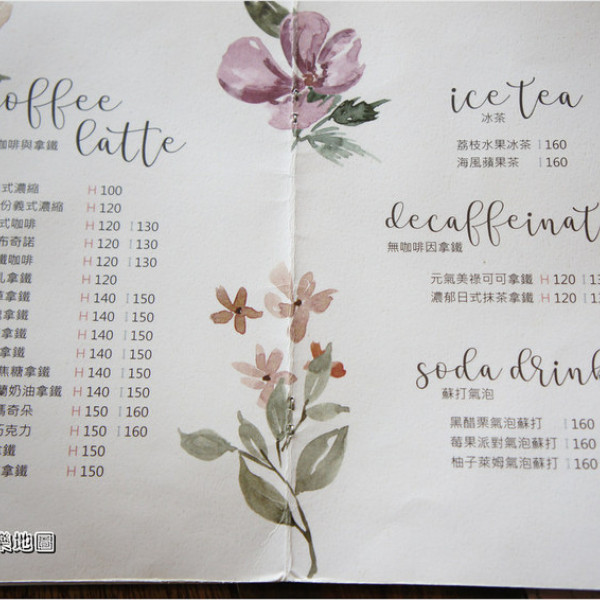 coffee
latte
咖啡與拿鐵
式濃縮 H 100
份義式濃縮 H 120
式咖啡 H 120 I 130
布奇諾 H 120 I 130
鐵咖啡 H 120 I 130
扎拿鐵 H 120
拿鐵 H 140 I 150
拿鐵 H 140 I 150
拿鐵 H 140 I 150
拿鐵 H 140 I 150
焦糖拿鐵 H 140 I 150
蘭奶油拿鐵 H 140 I 150
瑪奇朵 H 150 I 160
巧克力 H 150 I 160
拿鐵 H 150
拿鐵 H 150
樂地圖
ice tea
冰茶
荔枝水果冰茶 I 160
海風蘋果茶 I 160
decaffeinat
無咖啡因拿鐵
元氣美祿可可拿鐵 H 120 I 13
濃郁日式抹茶拿鐵 H 120 I 13
soda drink
蘇打氣泡
黑醋栗氣泡蘇打 I 160
莓果派對氣泡蘇打 I 160
柚子萊姆氣泡蘇打 I 160